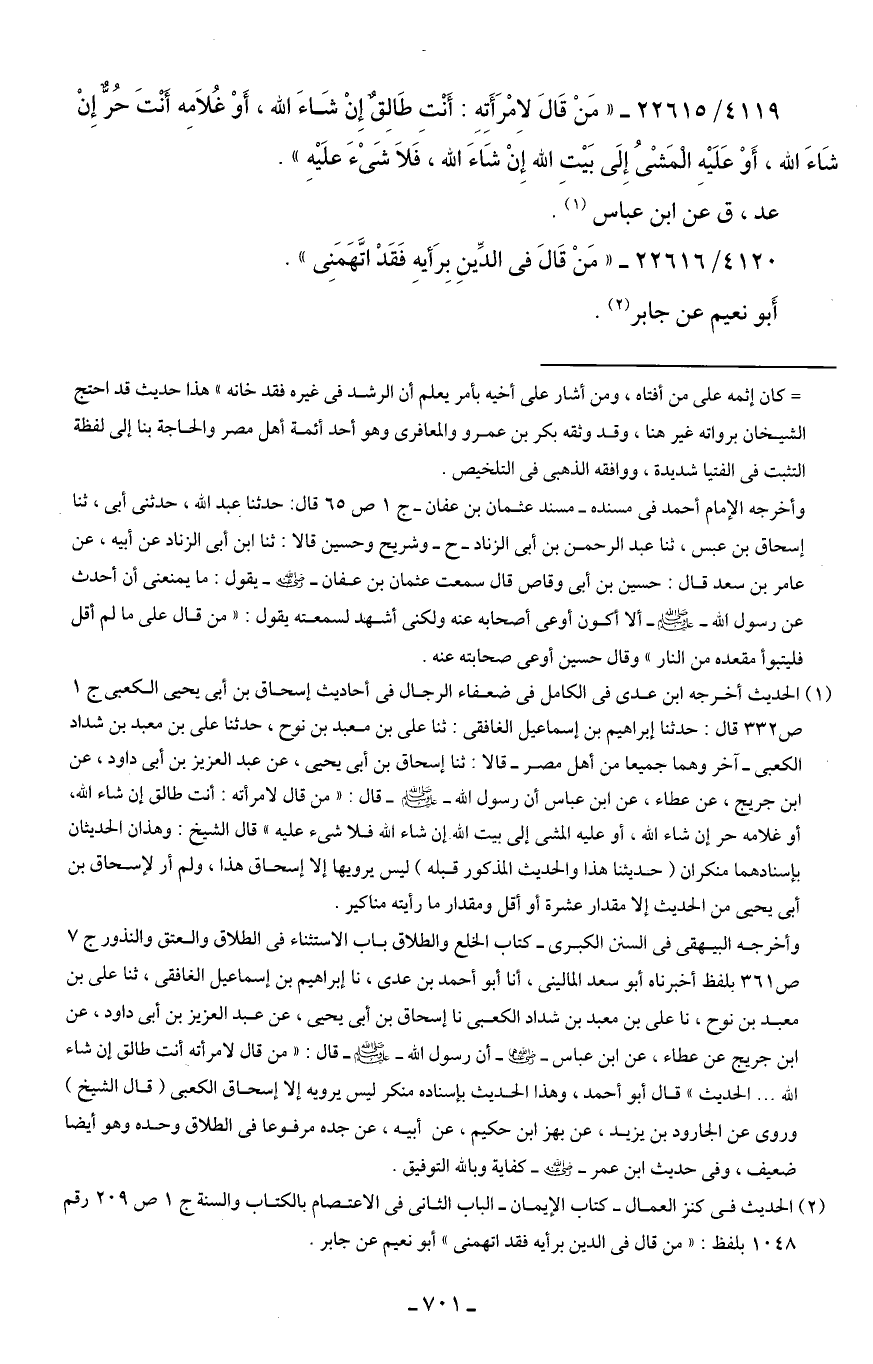 ٢٢٦١٥/٤١١٩ ـ « مَنْ قَالَ لامْرَأَتِه : أَنْتِ طَالِقٌ إِنْ شَاءَ الله ، أَوْ غُلَامِه أَنْتَ حُرٌّ إِنْ
شَاءَ الله ، أَوْ عَلَيْهِ الْمَشْىُ إِلَى بَيْتِ الله إِنْ شَاءَ الله ، فَلاَ شَىْءَ عَلَيْهِ » .
عد ، ق عن ابن عباس (١) .
٢٢٦١٦/٤١٢٠ ـ « مَنْ قَالَ فى الدِّينِ بِرَأيِهِ فَقَدْ اتَّهَمَنِى » .
أَبو نعيم عن جابر (٢) .
= كان إثمه على من أفتاه ، ومن أشار على أخيه بأمر يعلم أن الرشد فى غيره فقد خانه » هذا حديث قد احتج
الشيخان برواته غير هنا ، وقد وثقه بكر بن عمرو والمعافرى وهو أحد أئمة أهل مصر والحاجة بنا إلى لفظة
التثبت فى الفتيا شديدة ، ووافقه الذهبى فى التلخيص .
وأخرجه الإمام أحمد فى مسنده ـ مسند عثمان بن عفان ـ ج ١ ص ٦٥ قال: حدثنا عبد الله ، حدثنى أبى ، ثنا
إسحاق بن عبس ، ثنا عبد الرحمن بن أبى الزناد ـ ح ـ وشريح وحسين قالا : ثنا ابن أبى الزناد عن أبيه ، عن
عامر بن سعد قال : حسين بن أبى وقاص قال سمعت عثمان بن عفان ـ رضي الله عنه ـ يقول : ما يمنعنى أن أحدث
عن رسول الله ـ ﷺ ـ ألا أكون أوعى أصحابه عنه ولكنى أشهد لسمعته يقول : « من قال على ما لم أقل
فليتبوأ مقعده من النار » وقال حسين أوعى صحابته عنه .
(١) الحديث أخرجه ابن عدى فى الكامل فى ضعفاء الرجال فى أحاديث إسحاق بن أبى يحيى الكعبى ج ١
ص٣٣٢ قال : حدثنا إبراهيم بن إسماعيل الغافقى : ثنا على بن معبد بن نوح ، حدثنا على بن معبد بن شداد
الكعبى ـ آخر وهما جميعا من أهل مصر ـ قالا : ثنا إسحاق بن أبى يحيى ، عن عبد العزيز بن أبى داود ، عن
ابن جريج ، عن عطاء ، عن ابن عباس أن رسول الله ـ ﷺ ـ قال : « من قال لامرأته : أنت طالق إن شاء الله،
أو غلامه حر إن شاء الله ، أو عليه المشى إلى بيت الله إن شاء الله فلا شىء عليه » قال الشيخ : وهذان الحديثان
بإسنادهما منكران ( حديثنا هذا والحديث المذكور قبله ) ليس يرويها إلا إسحاق هذا ، ولم أر لإسحاق بن
أبى يحيى من الحديث إلا مقدار عشرة أو أقل ومقدار ما رأيته مناكير .
وأخرجه البيهقى فى السنن الكبرى ـ كتاب الخلع والطلاق باب الاستثناء فى الطلاق والعتق والنذور ج ٧
ص٣٦١ بلفظ أخبرناه أبو سعد المالينى ، أنا أبو أحمد بن عدى ، نا إبراهيم بن إسماعيل الغافقى ، ثنا على بن
معبد بن نوح ، نا على بن معبد بن شداد الكعبى نا إسحاق بن أبى يحيى ، عن عبد العزيز بن أبى داود ، عن
ابن جريج عن عطاء ، عن ابن عباس ـ رضي الله عنهما ـ أن رسول الله ـ ﷺ ـ قال : « من قال لامرأته أنت طالق إن شاء
الله ... الحديث » قال أبو أحمد ، وهذا الحديث بإسناده منكر ليس يرويه إلا إسحاق الكعبى ( قال الشيخ )
وروى عن الجارود بن يزيد ، عن بهز ابن حكيم ، عن أبيه ، عن جده مرفوعا فى الطلاق وحده وهو أيضا
ضعيف ، وفى حديث ابن عمر ـ رضي الله عنه ـ كفاية وبالله التوفيق .
(٢) الحديث فى كنز العمال ـ كتاب الإيمان ـ الباب الثانى فى الاعتصام بالكتاب والسنة ج ١ ص ٢٠٩ رقم
١٠٤٨ بلفظ : « من قال فى الدين برأيه فقد اتهمنى » أبو نعيم عن جابر .
ـ ٧٠١ ـ